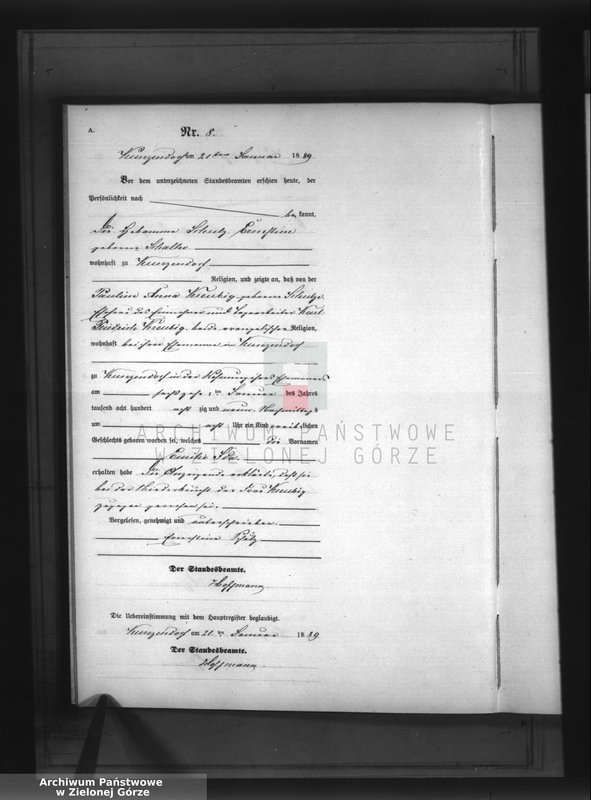 A.
Nr. 8.
Kunzendorf am 20ten Januar 1889
Vor dem unterzeichneten Standesbeamten erschien heute, der
Persönlichkeit nach
bekannt,
die Hebamme Schulz, Ernestine
geborne
wohnhaft zu Kunzendorf
Religion, und zeigte an, daß von der
Pauline Anna Kreubig geborene Schulze
Ehefrau des Einwohners und Karl
Friedrich Kreubig, beide evangelischer Religion,
wohnhaft bei ihrem Ehemanne in Kunzendorf
zu Kunzendorf in der Wohnung ihres Ehemannes
am sechszehnten Januar des Jahres
tausend acht hundert achtzig und neun Nachmittags
um acht Uhr ein Kind weiblichen
Geschlechts geboren worden sei, welches die Vornamen
Emilie Ida
erhalten habe. Die Anzeigende erklärte, daß sie
bei der Niederkunft der Frau Kreubig
zugegen gewesen sei.
Vorgelesen, genehmigt und unterschrieben
Ernestine
Der Standesbeamte.
Hoffmann
Die Uebereinstimmung mit dem Hauptregister beglaubigt.
Kunzendorf am 20ten Januar 1889
Der Standesbeamte.
Hoffmann
ARCHIWUM PAŃSTWOWE
W ZIELONEJ GÓRZE
Archiwum Państwowe
w Zielonej Górze